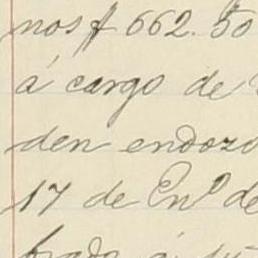 nos $ 662.50
á cargo de
den endozo
17 de En⁰ de